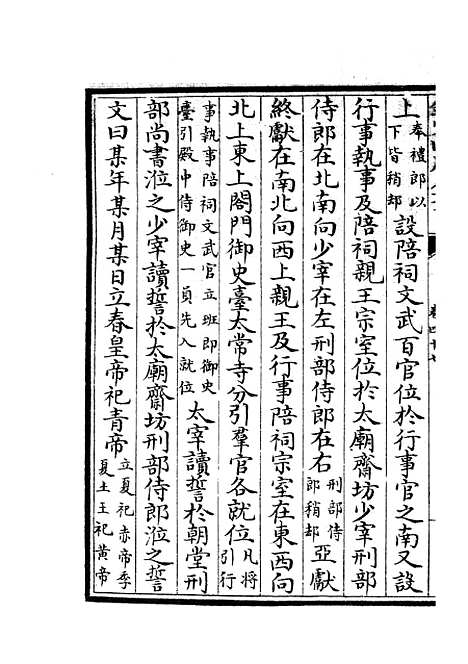 上奉禮郎以下皆稍却設陪祠文武百官位於行事官之南又設
行事執事及陪祠親王宗室位於太廟齋坊少宰刑部
侍郎在北南向少宰在左刑部侍郎在右刑部侍郎稍却亞獻
終獻在南北向西上親王及行事陪祠宗室在東西向
北上東上閤門御史臺太常寺分引羣官各就位凡將引行
事執事陪祠文武官立班即御史臺引殿中侍御史一員先入就位太宰讀誓於朝堂刑
部尚書涖之少宰讀誓於太廟齋坊刑部侍郎涖之誓
文曰某年某月某日立春皇帝祀青帝立夏祀赤帝季夏土王祀黃帝